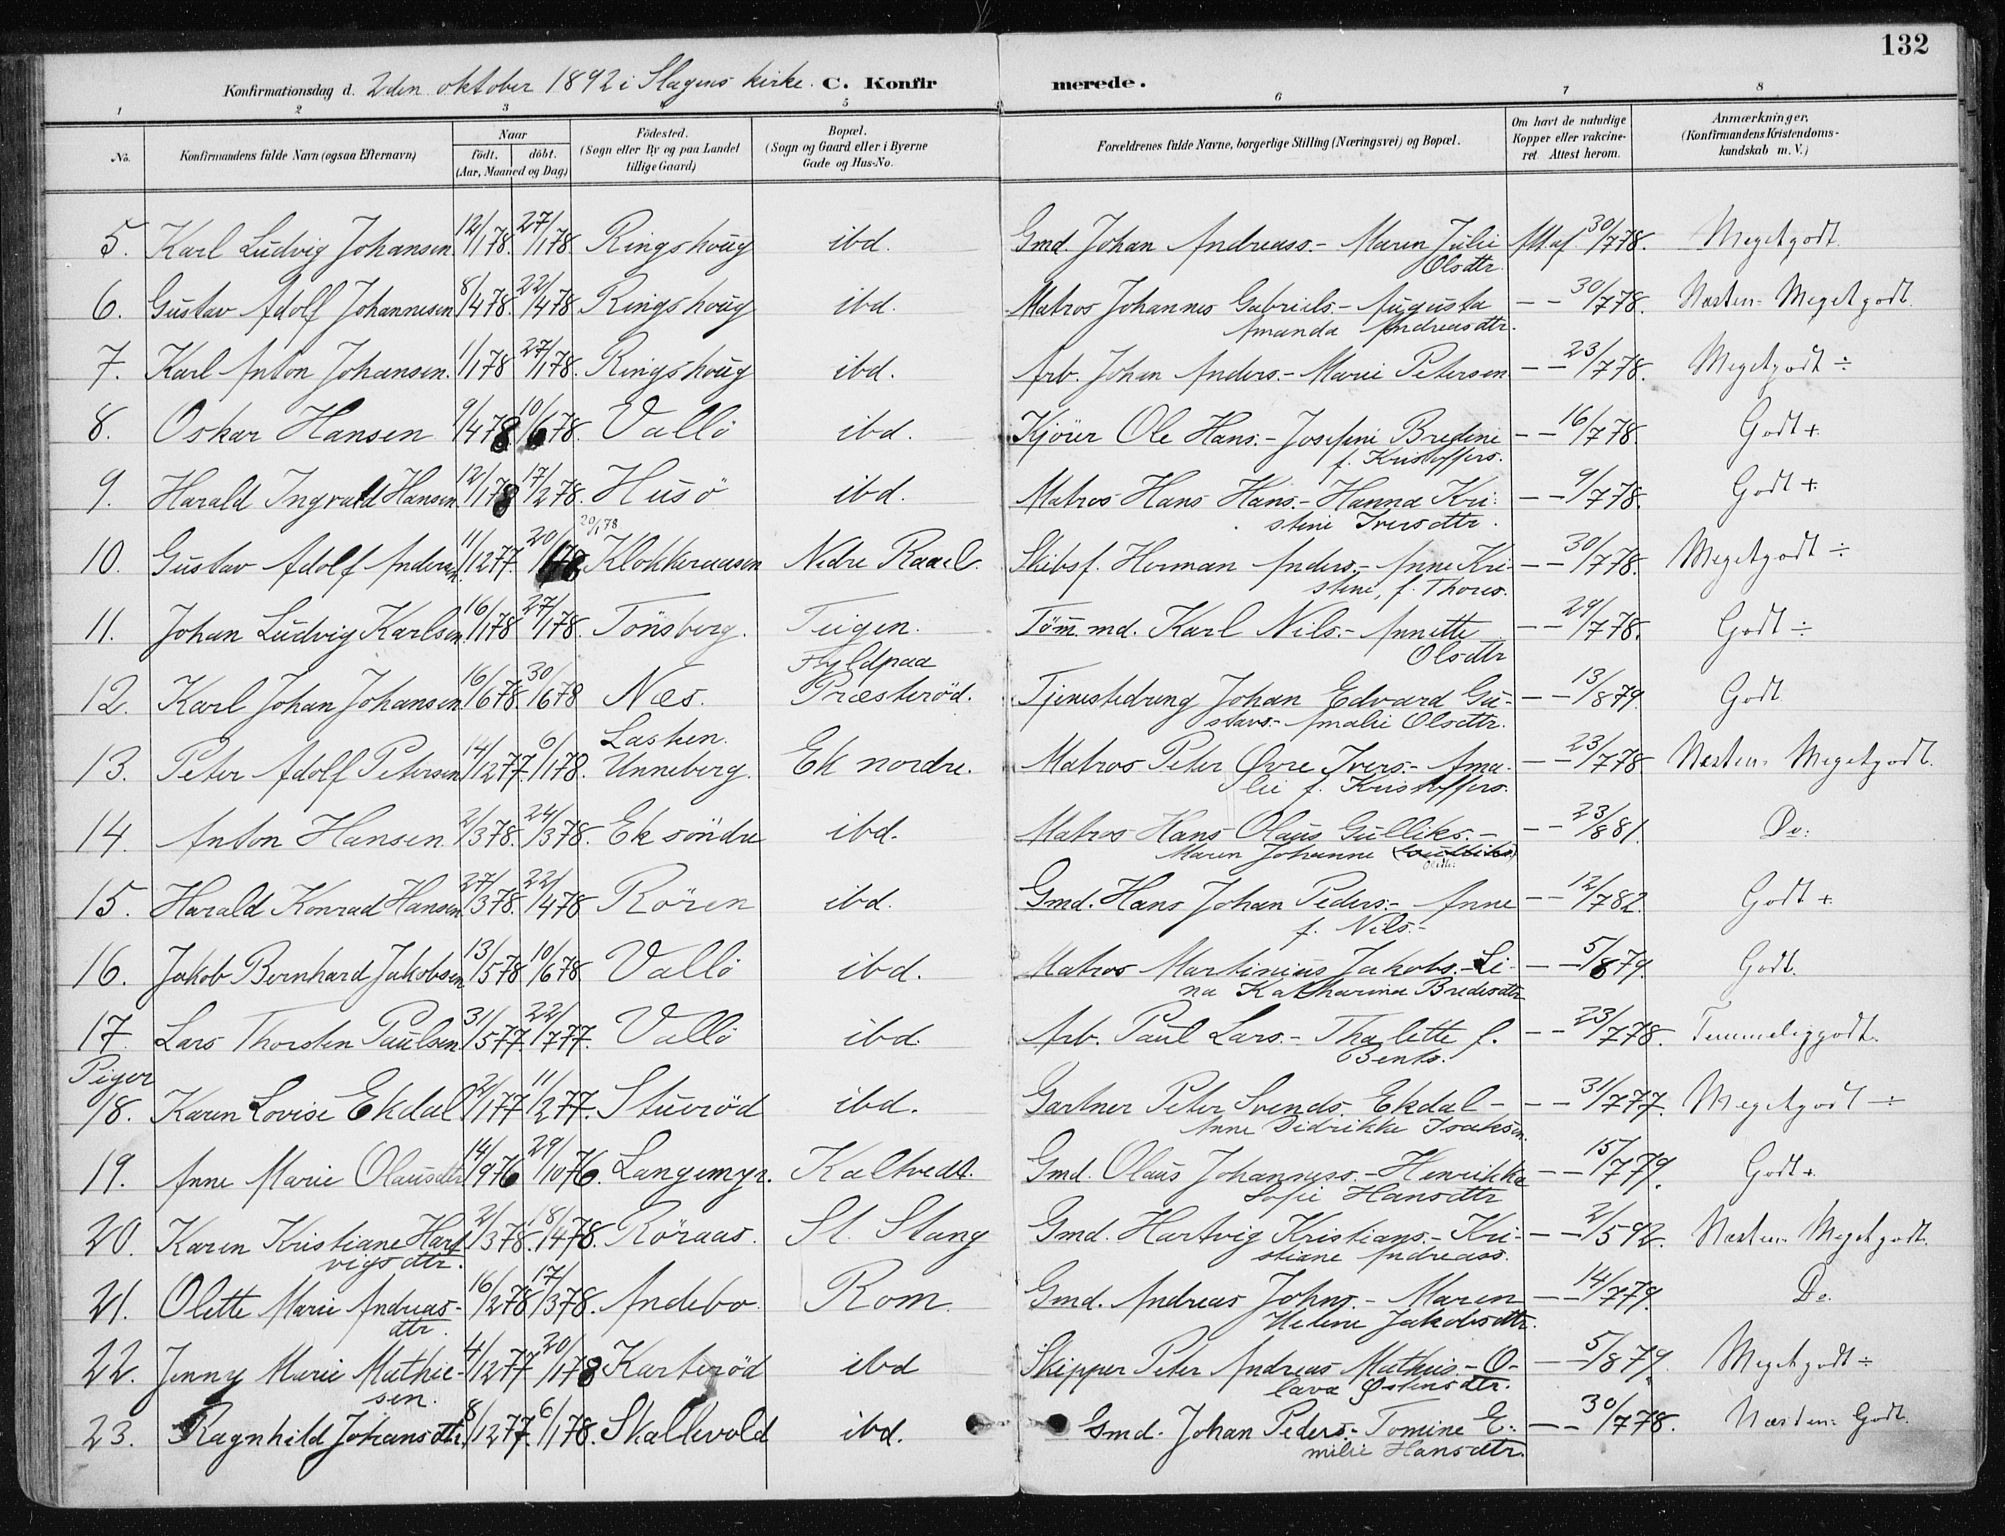 132
Konfirmationsdag d. 2den oktober 1892 i Slagens kirke. C. Konfirmerede.
1 2 3 5 6 7 8
No. Konfirmandens fulde Navn (ogsaa Efternavn) Naar födt. döbt. (Aar, Maaned og Dag) Födested. (Sogn eller By og paa Landet tillige Gaard) Bopæl. (Sogn og Gaard eller i Byerne Gade og Hus-No. Forældrenes fulde Navne, borgerlige Stilling (Næringsvei) og Bopæl. Om havt de naturlige Kopper eller vakcineret. Attest herom. Anmærkninger, (Konfirmandens Kristendomskundskab m. V.)
5. Karl Ludvig Johansen 12/1 78. 27/1 78. Ringshoug ibd. Gmd. Johan Andreass.- Maren Julie Olsdtr. Att. af 30/7 78. Megetgodt.
6. Gustav Adolf Johannesen 8/4 78. 22/4 78 Ringshoug ibd. Matros Johannes Gabriels.- Augusta Amanda Andreasdtr. - - 30/7 78. Næsten Megetgodt.
7. Karl Anton Johansen. 1/1 78 27/1 78. Ringshoug ibd. Arb. Johan Anders.- Marie Petersen - - 23/7 78. Megetgodt ÷
8. Oskar Hansen 9/4 78 10/6 78. Vallö ibd. Kjöier Ole Hans.- Josefine Bredine f. Kristoffers. - - 16/7 78. Godt +
9. Harald Ingvald Hansen 12/1 78 17/2 78. Husö ibd. Matros Hans Hans.- Hanna Kristine Iversdtr. - - 9/7 78. Godt +
20/1 78
10. Gustav Adolf Andersen 11/12 77. 20/1 78 Klokkeraasen Nedre Raael. Skibsf. Herman Anders.- Anne Kristine, f. Thores. - - 30/7 78. Megetgodt ÷
11. Johan Ludvig Karlsen 16/1 78 27/1 78. Tönsberg. Teigen. Tömmd. Karl Nils.- Annette Olsdtr - - 29/7 78. Godt ÷
12. Karl Johan Johansen 16/6 78. 30/6 78 Næs. Fyldpaa Præsteröd. Tjenestedreng Johan Edvard Gustavs.- Amalie Olsdtr. - - 13/8 79. Godt
13. Peter Adolf Petersen 14/12 77. 6/1 78. Lasken. Unneberg. Ek nordre. Matros Peter Øvre Ivers.- Amalie f. Kristoffers. - - 23/7 78 Næsten Megetgodt.
14. Anton Hansen 2/3 78. 24/3 78. Ek söndre ibd. Matros Hans Olaus Gulliks.- Maren Johanne - - 23/8 81. Do.
15. Harald Konrad Hansen 27/3 78. 22/4 78 Rören ibd. Gmd. Hans Johan Peders.- Anne f. Nils.- - - 12/7 82. Godt +
16. Jakob Bernhard Jakobsen 13/5 78. 10/6 78. Vallö ibd. Matros Martinius Jakobs.- Lina Katharina Bredesdtr - - 5/8 79. Godt.
17. Lars Thorsten Paulsen 31/5 77. 22/7 77. Vallö ibd. Arb. Paul Lars.- Thalette f. Bents. - - 23/7 78. Temmeliggodt.
Piger
18. Karen Lovise Ekdal 2/1 77 11/2 77. Stueröd ibd. Gartner Peter Svends. Ekdal - Anne Didrikke Isaksen. - - 31/7 77. Megetgodt ÷
19. Anne Marie Olausdtr 14/9 76 29/10 76. Langemyr. Kaltvedt. Gmd. Olaus Johanness.- Henrikke Sofie Hansdtr - - 15/7 79. Godt +
20. Karen Kristiane Hartvigsdtr. 2/3 78. 18/4 78. Röraas. St. Stang Gmd. Hartvig Kristians.- Kristiane Andreass. - - 2/5 92. Næsten Megetgodt.
21. Olette Marie Andreasdtr. 16/2 78 17/3 78. Andebo. Rom. Gmd. Andreas Johns.- Maren Helene Jakobsdtr. - - 14/7 79. Do.
22. Jenny Marie Mathiesen. 4/12 77 20/1 78 Karteröd ibd Skipper Peter Andreas Mathis.- Olava Østensdtr. - - 5/8 79. Megetgodt ÷
23. Ragnhild Johansdtr. 8/12 77. 6/1 78. Skallevold ibd. Gmd. Johan Peders.- Tomine Emilie Hansdtr. - - 30/7 78. Næsten Godt.